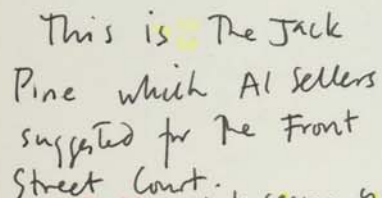 This is The Jack
Pine which Al Sellers
suggested for The Front
Street Court.